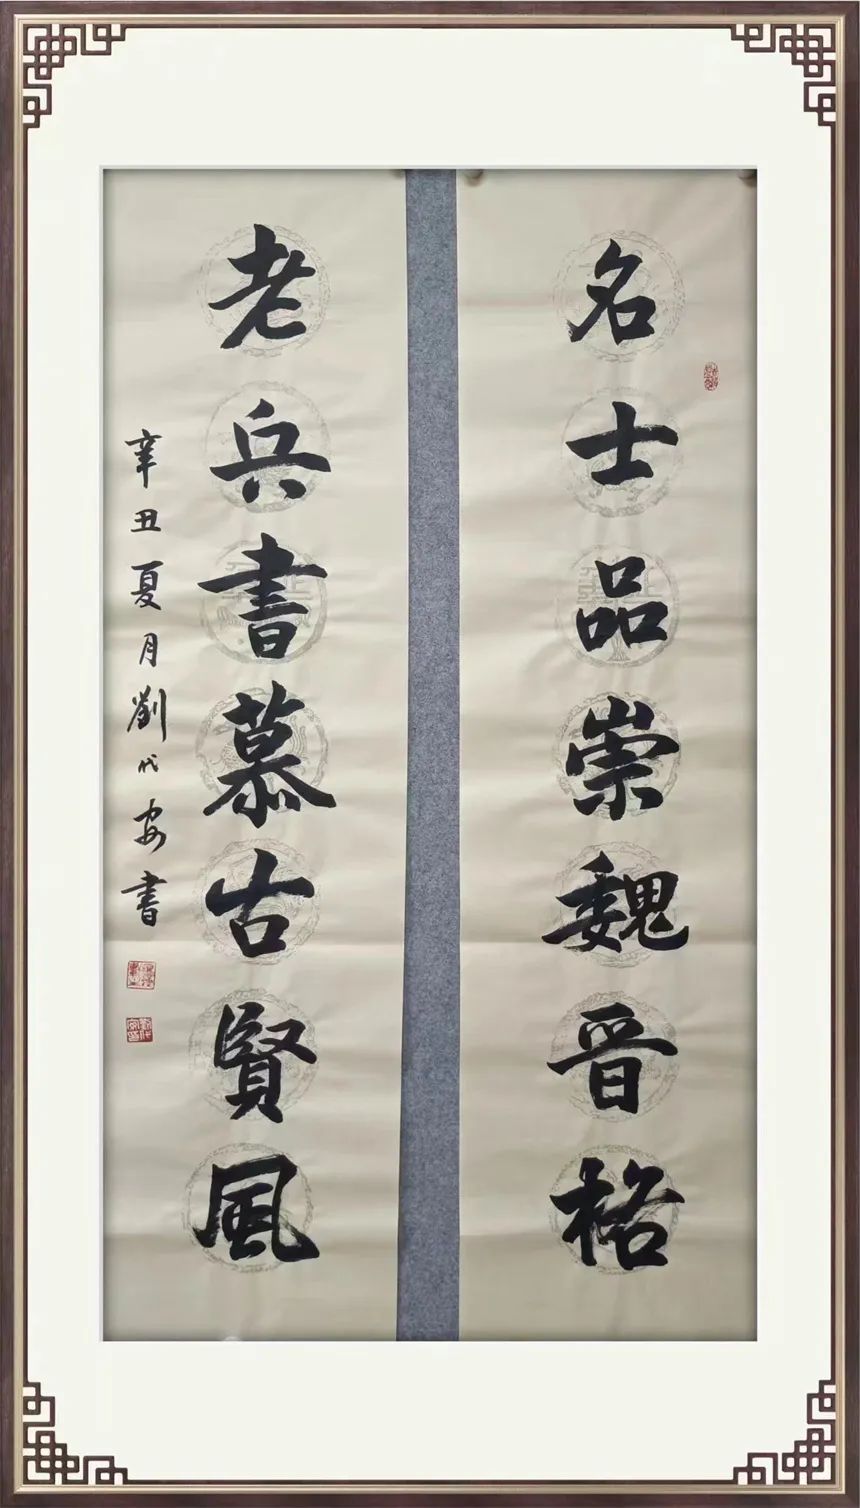 名士品崇魏晋格
老兵書慕古賢風
辛丑夏月劉代安書